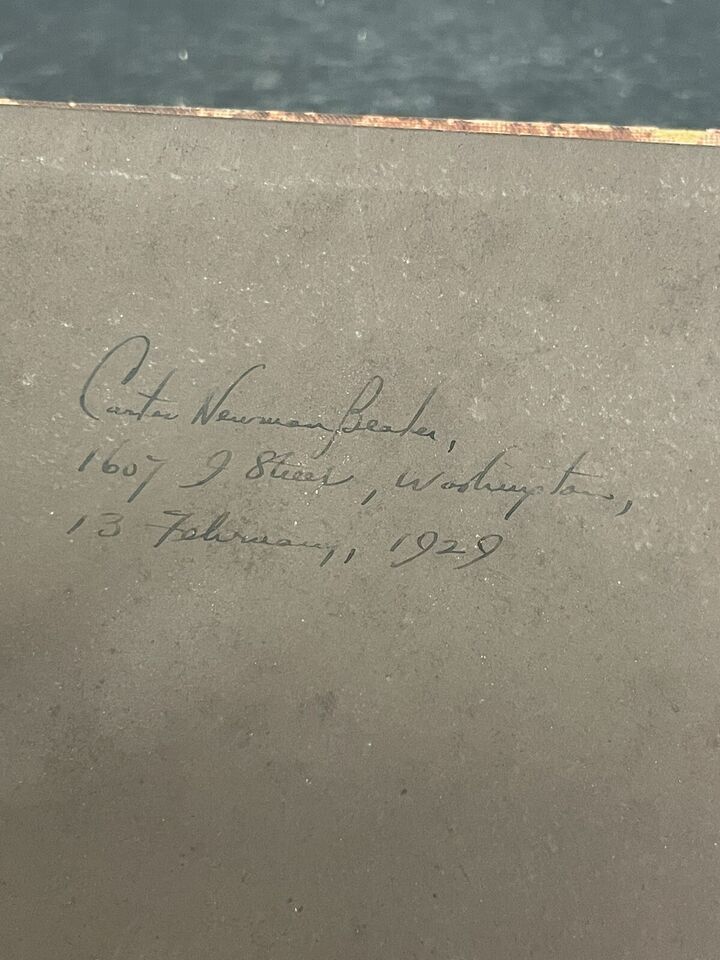 Carter Newman Bealer,
1607 I Street, Washington,
13 February, 1929